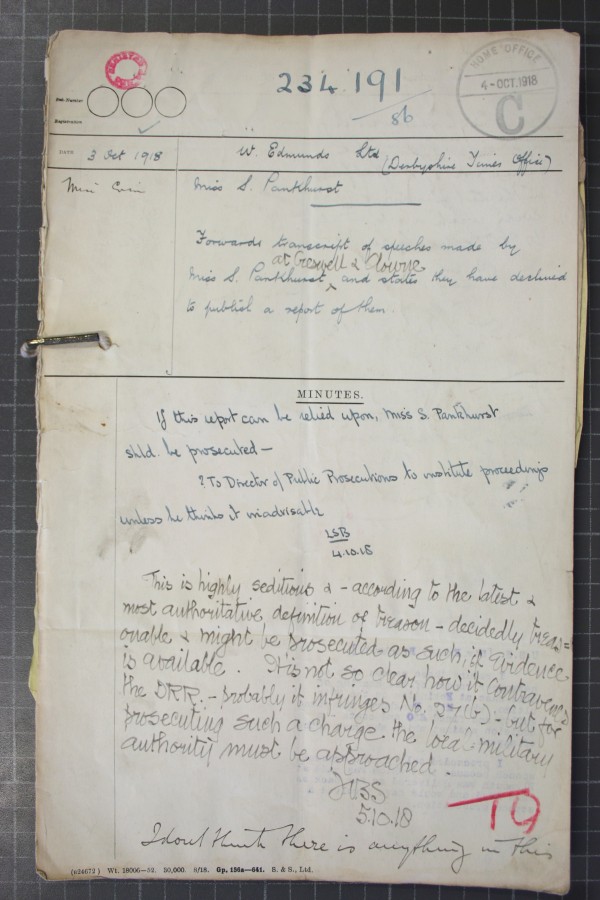 REGISTERED
234.191
86
HOME OFFICE
4-OCT.1918
C
DATE 3 Oct 1918
W. Edmunds Ltd (Derbyshire Times Office)
Miss S. Pankhurst
Forwards transcript of speeches made by
at Creswell & Clowne
Miss S. Pankhurst ‸ and states they have declined
to publish a report of them.
MINUTES.
If this report can be relied upon, Miss S. Pankhurst
shld. be prosecuted—
? To Director of Public Prosecutions to institute proceedings
unless he thinks it inadvisable
LSB
4.10.18
This is highly seditious & - according to the latest &
most authoritative definition of treason - decidedly treas=
onable & might be prosecuted as such, if evidence
is available. It is not so clear how it contravenes
the DRR. - probably it infringes No. 27 - but for
prosecuting such a charge the local military
authority must be approached.
5.10.18
T9
I dont think there is anything in this
(824672) Wt. 18006—52. 50,000. 8/18. Gp. 156a—641. S. & S., Ltd.